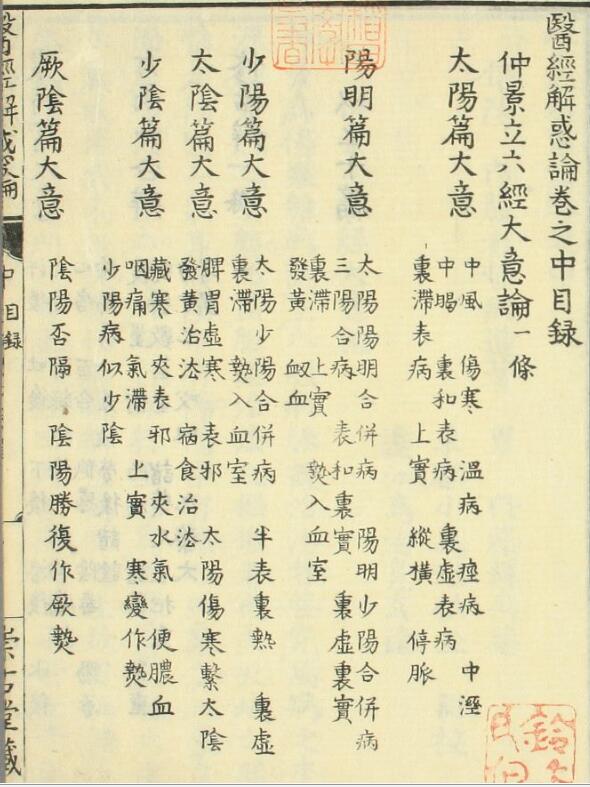 醫經解惑論巻之中目録
仲景立六經大意論一條
太陽篇大意
中風 傷寒 溫病 痙病 中溼
中暍 裏和表病 裏虛表病
裏滯表病 上實 縱橫 停脈
陽明篇大意
太陽陽明合併病 陽明少陽合併病
三陽合病 表和裏實 裏虛裏實
裏滯 上實 𤍠入血室
發黃 衂血
少陽篇大意
太陽少陽合併病 半表裏𤍠 裏虛
裏滯 𤍠入血室
太陰篇大意
脾胃虛寒 表邪 太陽傷寒繫太陰
發黃治法 宿食治法
少陰篇大意
藏寒 夾表邪 夾水氣 便膿血
咽痛 氣滯 上實 寒變作𤍠
少陽病似少陰
厥陰篇大意
陰陽否隔 陰陽勝復作厥𤍠
醫經解惑論 中 目録 崇古堂藏